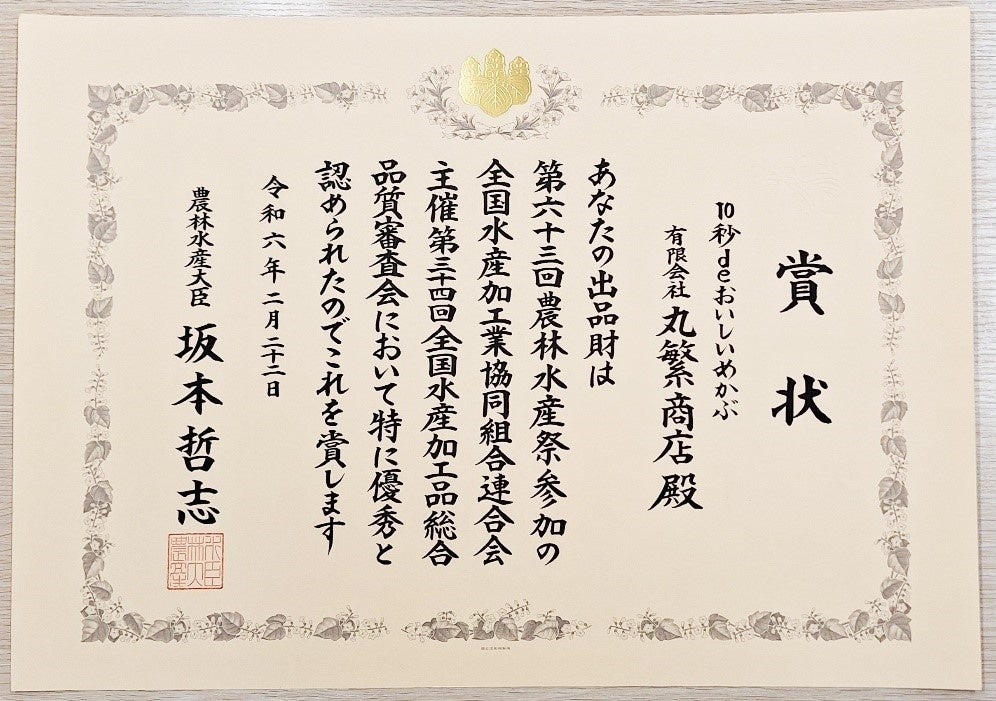 賞状
10秒deおいしいめかぶ
有限会社 丸繁商店 殿
あなたの出品財は
第六十三回農林水産祭参加の
全国水産加工業協同組合連合会
主催第三十四回全国水産加工品総合
品質審査会において特に優秀と
認められたのでこれを賞します
令和六年二月二十二日
農林水産大臣 坂本哲志